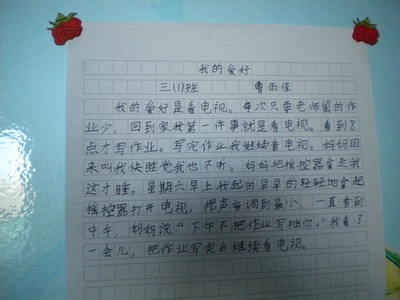 我的爱好
三(1)班 曹雨佳
我的爱好是看电视。每次只要老师留的作
业少,回到家我第一件事就是看电视。看到8
点才写作业。写完作业我继续看电视。妈妈回
来叫我快睡觉我也不听。妈妈把摇控器拿走我
这才睡。星期六早上我起的早早的轻轻地拿起
摇控器打开电视,把声音调到最小,一直看到
中午,妈妈说“下午不把作业写抽你。”我看了
一会儿,把作业写完自继续看电视。